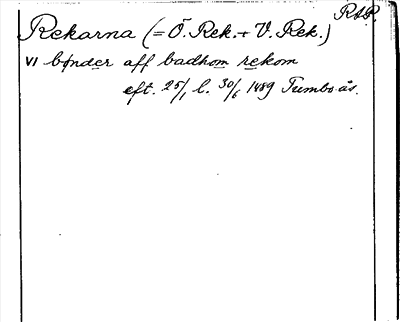 RAP.
Rekarna (= Ö. Rek. + V. Rek.)
VI bönder aff badhom rekom
eft. 25/1 l. 30/6 1489 Tumbo ås.